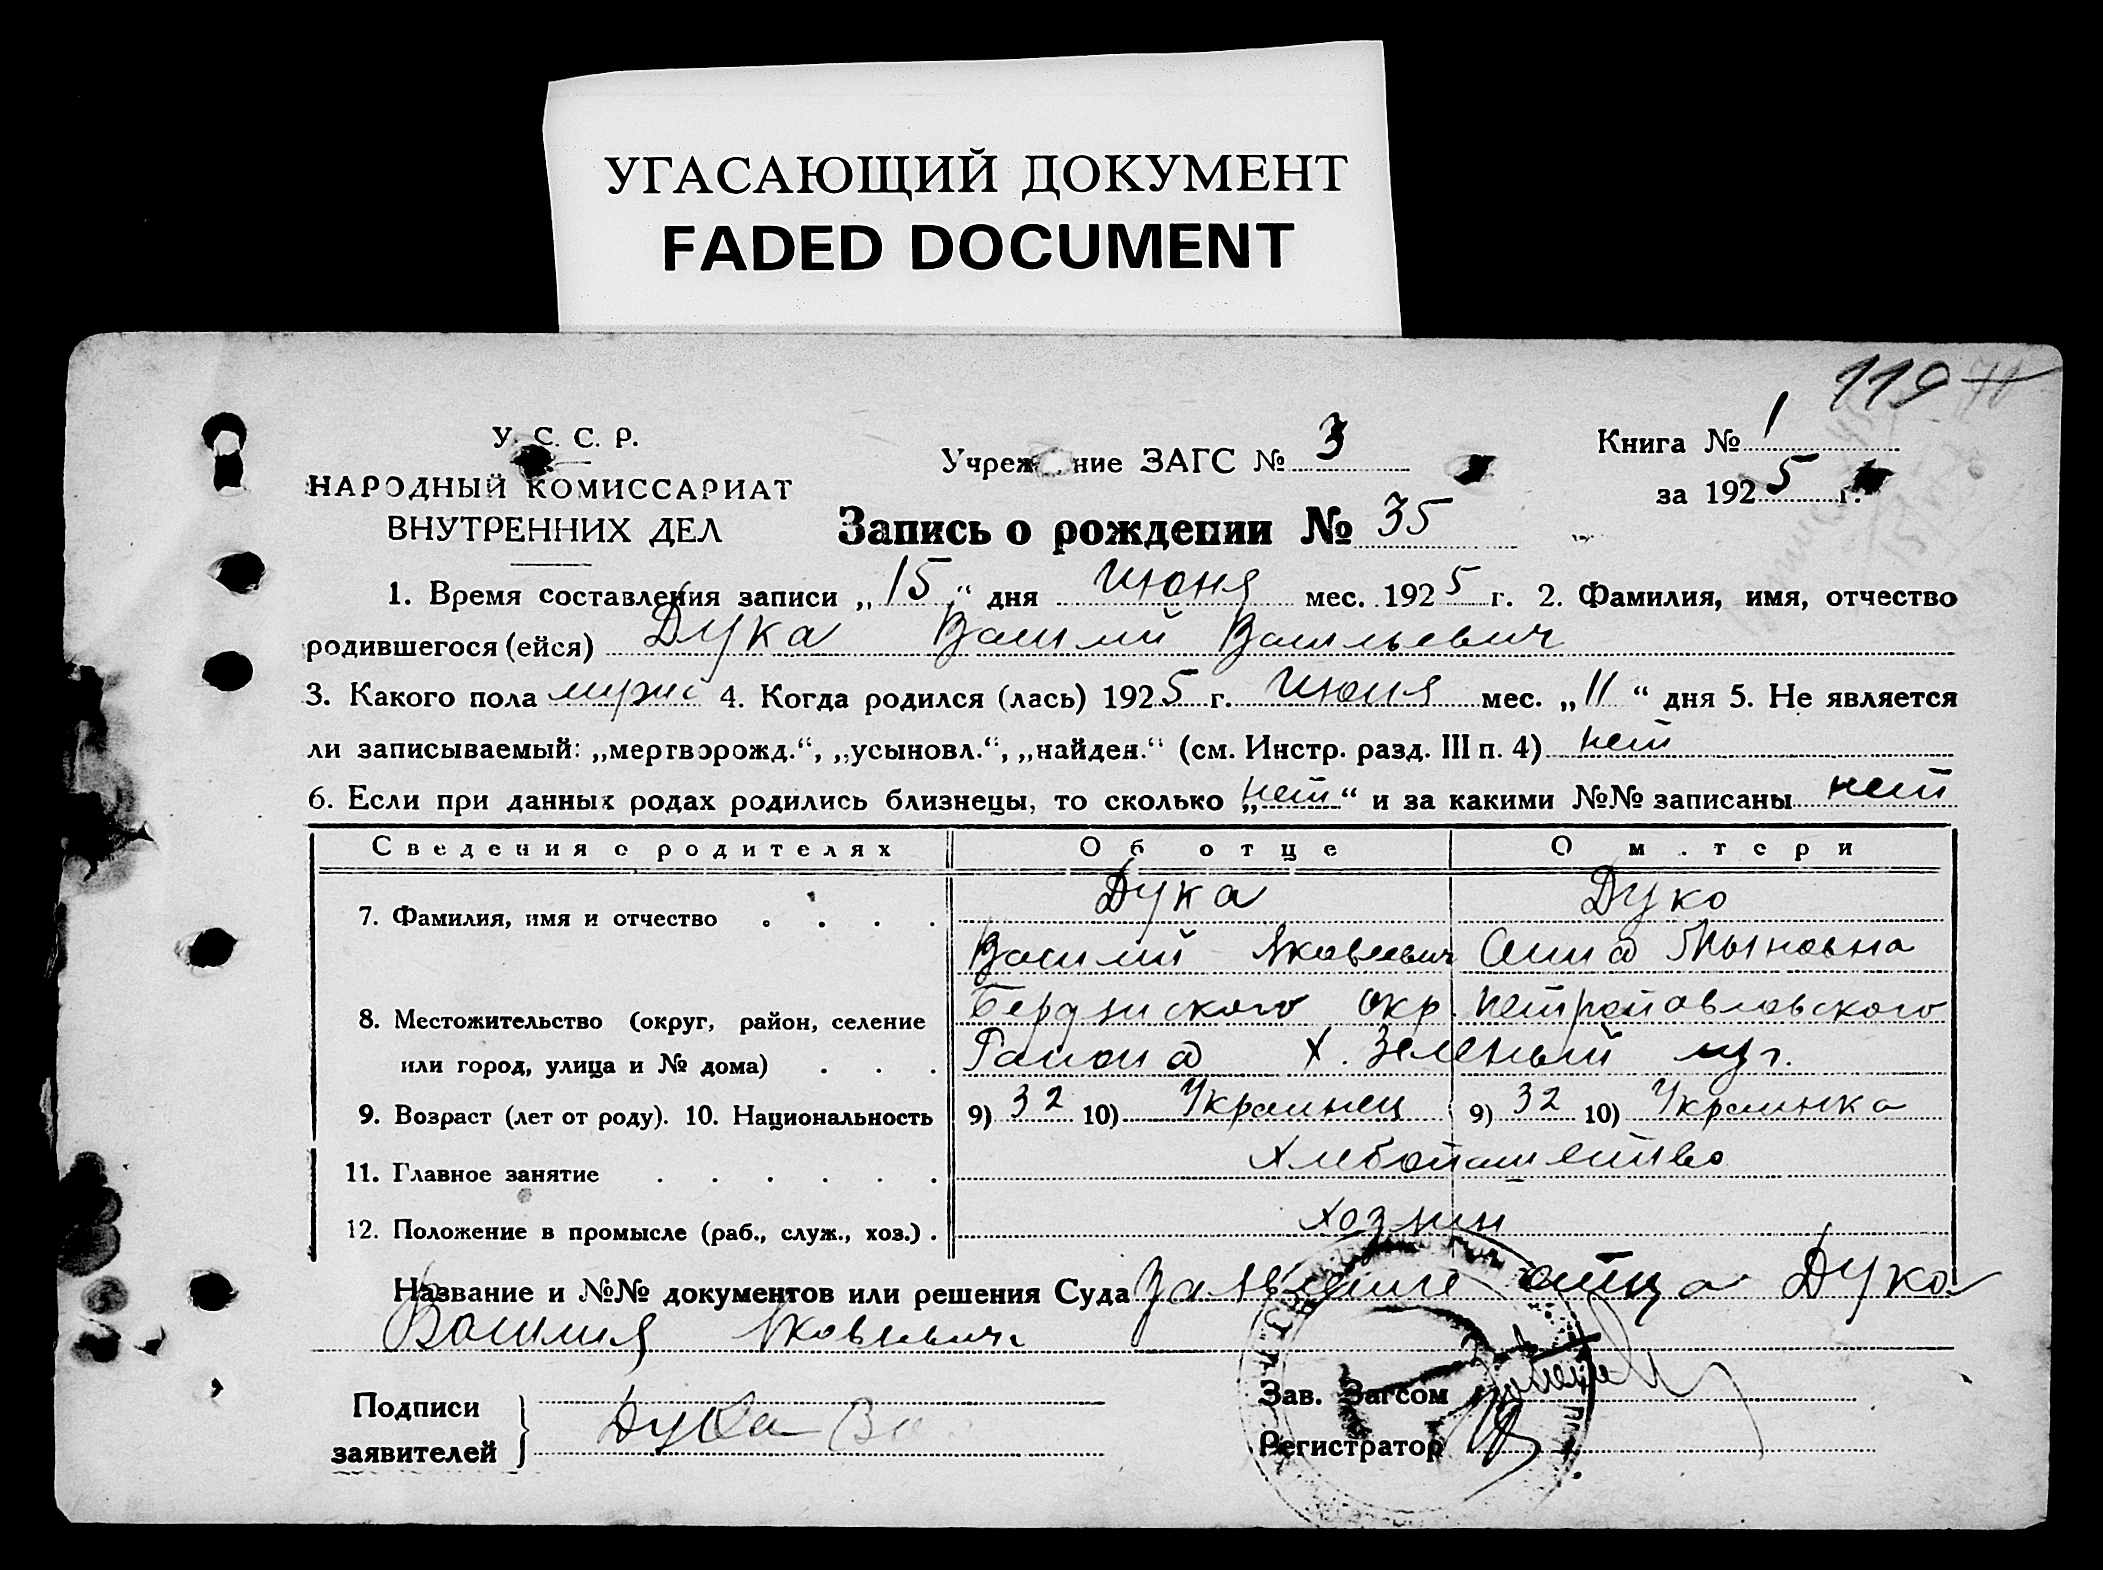 УГАСАЮЩИЙ ДОКУМЕНТ
FADED DOCUMENT
119
У. С. С. Р.
НАРОДНЫЙ КОМИССАРИАТ
ВНУТРЕННИХ ДЕЛ
Учреждение ЗАГС № 3
Книга № 1
за 1925 г.
Запись о рождении № 35
1. Время составления записи „15“ дня Июня мес. 1925 г. 2. Фамилия, имя, отчество
родившегося (ейся) Дука Василий Васильевич
3. Какого пола мужс 4. Когда родился (лась) 1925 г. Июня мес. „11“ дня 5. Не является
ли записываемый: „мертворожд.“, „усыновл.“, „найден.“ (см. Инстр. разд. III п. 4) нет
6. Если при данных родах родились близнецы, то сколько „нет“ и за какими №№ записаны нет
Сведения о родителях Об отце О матери
7. Фамилия, имя и отчество . . . . Дука Дуко
Василий Яковлевич Анна
8. Местожительство (округ, район, селение Бердянского Окр. Петропавловского
или город, улица и № дома) . . . Района х. Зеленый
9. Возраст (лет от роду). 10. Национальность 9) 32 10) Украинец 9) 32 10) Украинка
11. Главное занятие . . . . . . Хлебопашество
12. Положение в промысле (раб., служ., хоз.) . хозяин
Название и №№ документов или решения Суда Заявление отца Дука
Василия Яковлевича
Подписи
заявителей
Дука Ва
Зав. Загсом
Регистратор